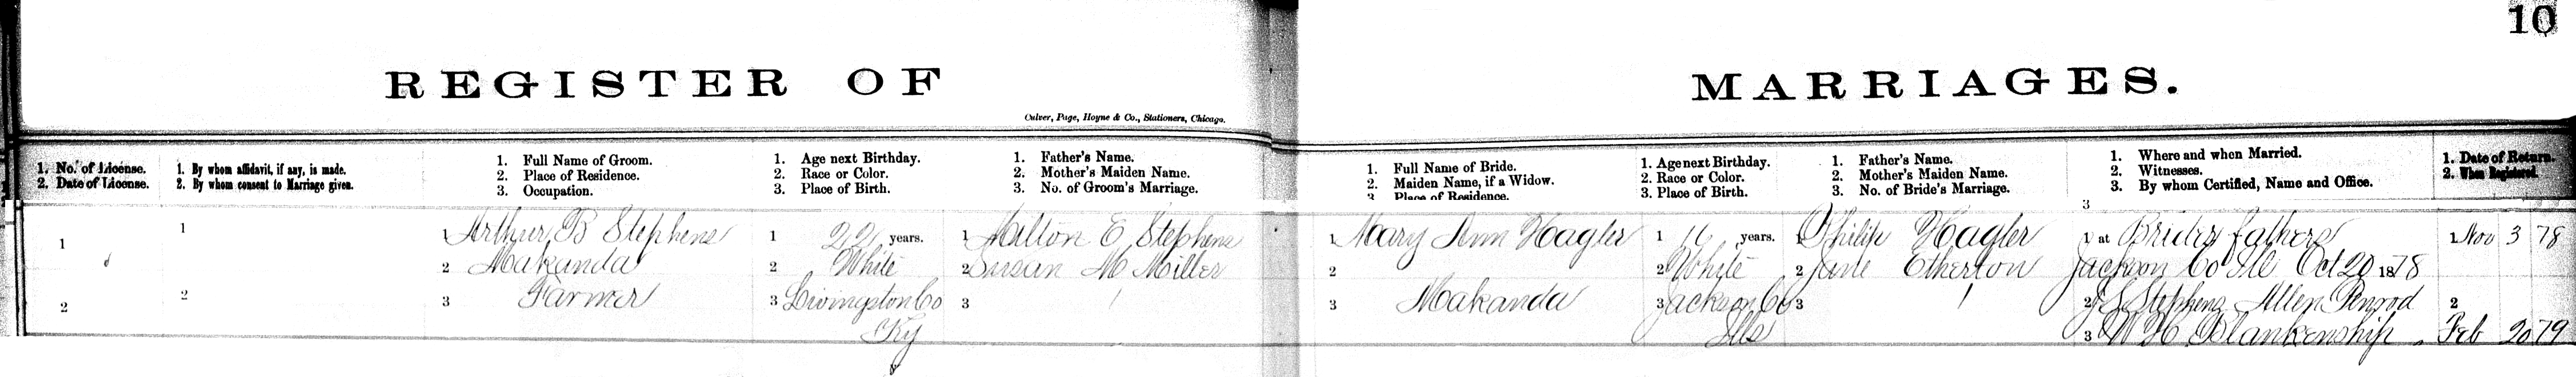 10
REGISTER OF MARRIAGES.
Culver, Page, Hoyne & Co., Stationers, Chicago.
1. No. of License.
2. Date of License.
1. By whom affidavit, if any, is made.
2. By whom consent to Marriage given.
1. Full Name of Groom.
2. Place of Residence.
3. Occupation.
1. Age next Birthday.
2. Race or Color.
3. Place of Birth.
1. Father's Name.
2. Mother's Maiden Name.
3. No. of Groom's Marriage.
1. Full Name of Bride.
2. Maiden Name, if a Widow.
3 Place of Residence.
1. Age next Birthday.
2. Race or Color.
3. Place of Birth.
1. Father's Name.
2. Mother's Maiden Name.
3. No. of Bride's Marriage.
1. Where and when Married.
2. Witnesses.
3. By whom Certified, Name and Office.
1. Date of Return.
2. When Registered.
3
1
2
1
2
1 Arthur B Stephens
2 Makanda
3 Farmer
1 22 years.
2 White
3 Livingston Co
Ky
1 Milton E Stephens
2 Susan M Miller
3 1
1 Mary Ann Hagler
2
3 Makanda
1 16 years.
2 White
3 Jackson Co
Ills
1 Philip Hagler
2 Jane Etherton
3 1
1 at Brides fathers
Jackson Co Ill Oct 20 1878
2 Stephens Allen Penrod
3 W H Blankenship
1 Nov 3 78
2
Feb 20 79